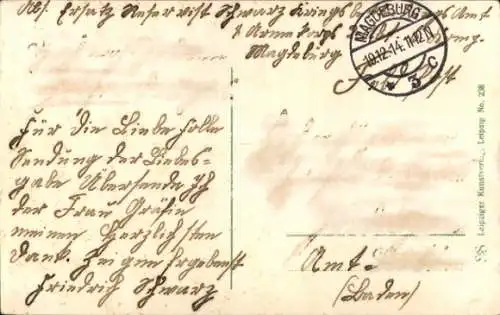 Abs. Ersatz Reservist Schwarz Kriegs Amt
Armee Korps
Magdeburg
MAGDEBURG
19.12.14. 11-12 N
* 3 c
Für die Liebe folle
Sendung der Liebes-
gabe Übersende Ich
der Frau Gräfin
meinen Herzlichsten
Dank.
Ergebenst
Friedrich Schwarz
Amt-
(Baden)
Leipziger Leipzig No. 238